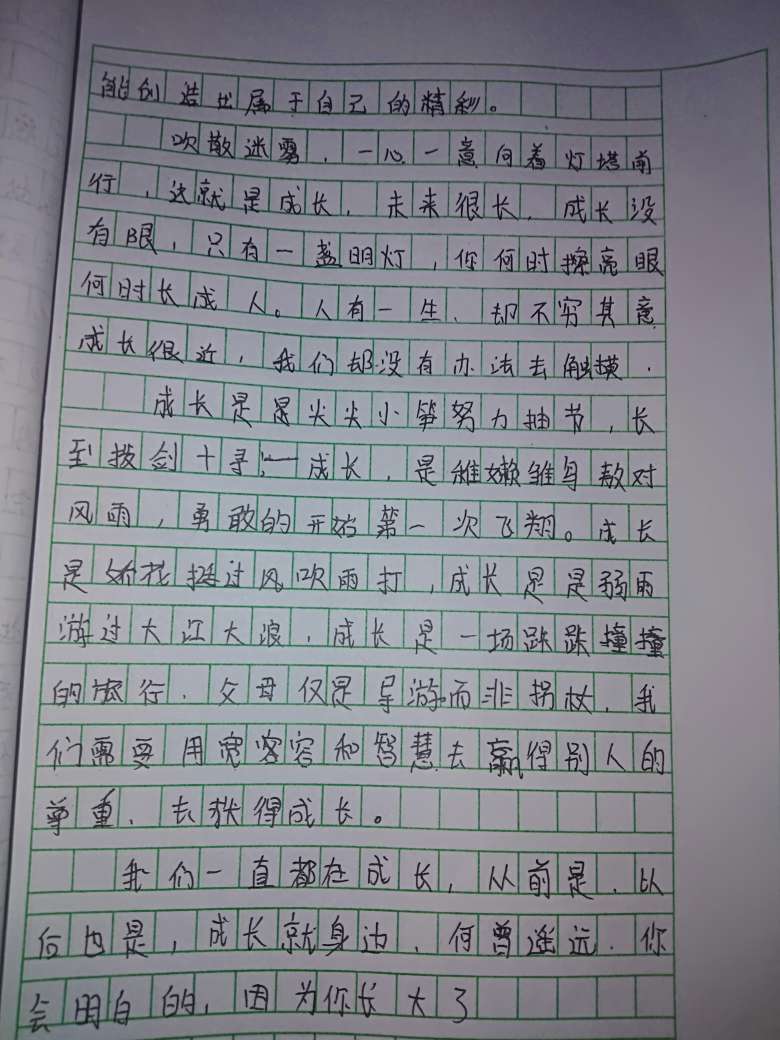 能创造出属于自己的精彩。
吹散迷雾，一心一意向着灯塔前
行，这就是成长，未来很长，成长没
有限，只有一盏明灯，你何时擦亮眼
何时长成人。人有一生，却不穷其意
成长很近，我们却没有办法去触摸．
成长是是尖尖小笋努力抽节，长
至拔剑十寻；一成长，是稚嫩雏鸟敖对
风雨，勇敢的开始第一次飞翔。成长
是娇花挺过风吹雨打，成长是是弱雨
游过大江大浪，成长是一场跌跌撞撞
的旅行．父母仅是导游而非拐杖，我
们需要用宽容容和智慧去赢得别人的
尊重、去获得成长。
我们一直都在成长，从前是．以
后也是，成长就身边，何曾遥远．你
会明白的，因为你长大了